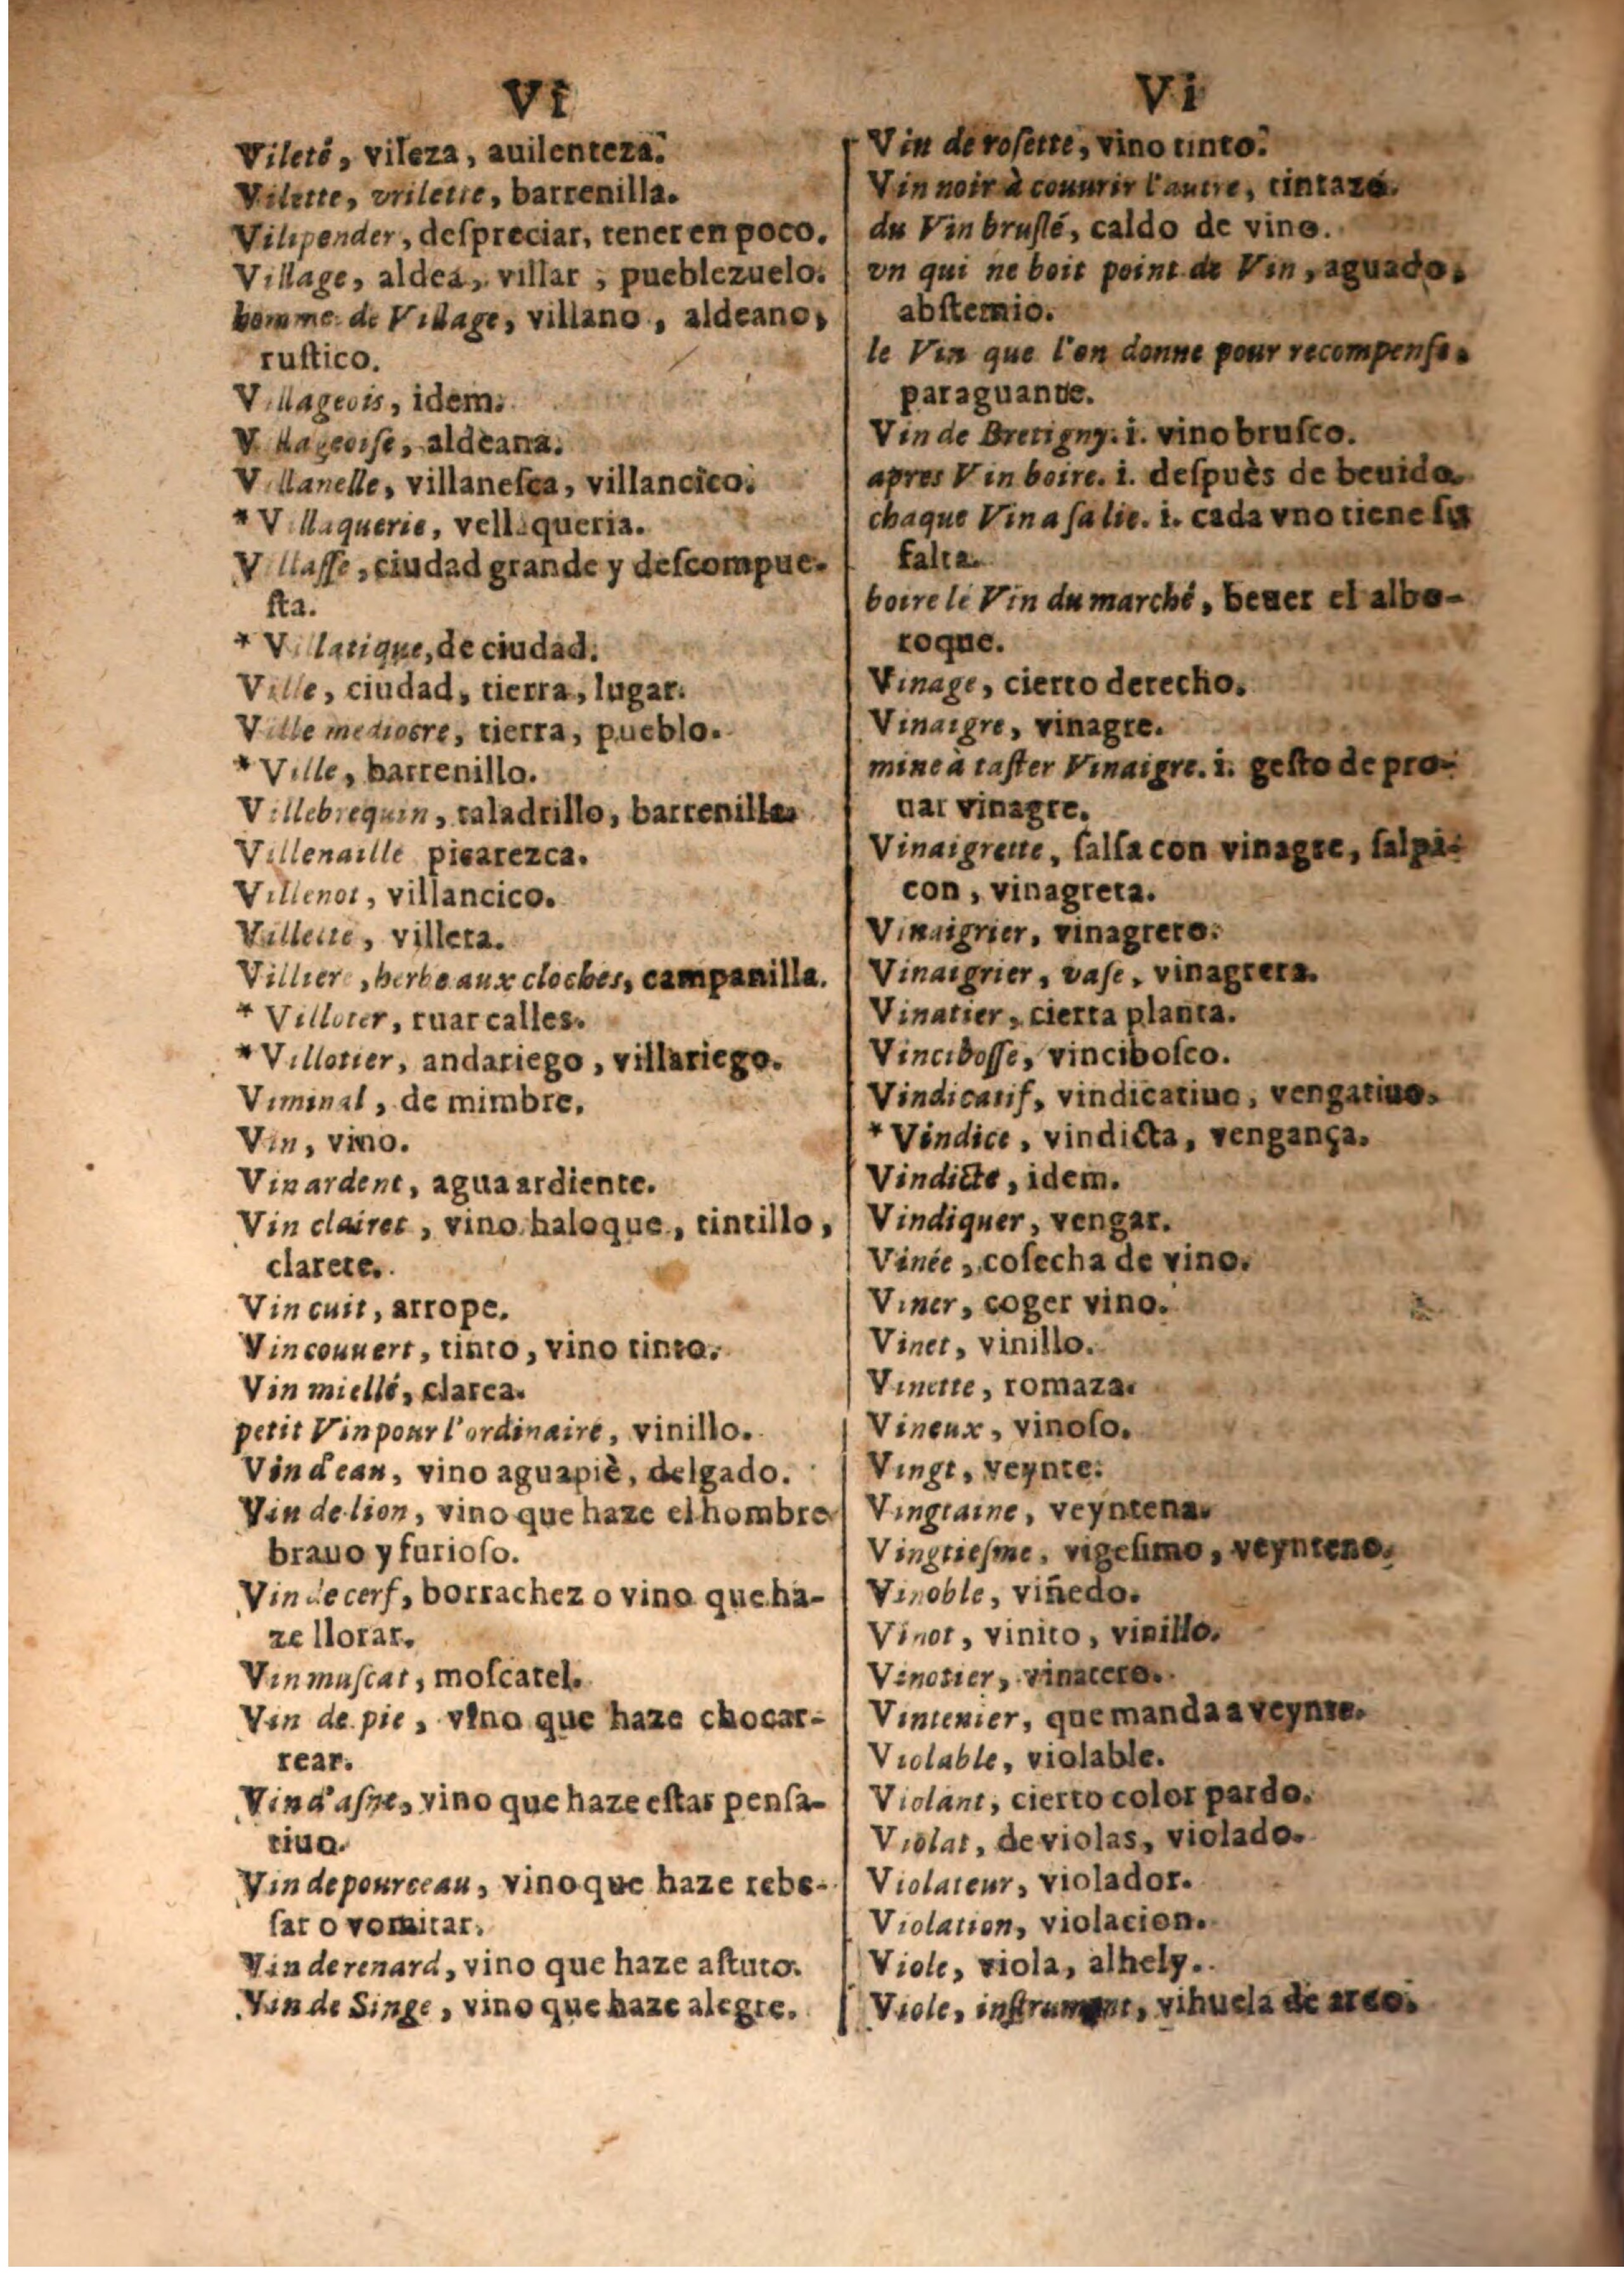 VI
Vileté, vileza, auilenteza.
Vilette, vrilette, barrenilla.
Vilipender, deſpreciar, tener en poco.
Village, aldea, villar, pueblezuelo.
homme de Village, villano, aldeano,
ruſtico.
Villageois, idem.
Villageoiſe, aldeana.
Villanelle, villaneſca, villancico.
* Villaquerie, vellaqueria.
Villaſſe, ciudad grande y deſcompue-
ſta.
* Villatique, de ciudad.
Ville, ciudad, tierra, lugar.
Ville mediocre, tierra, pueblo.
* Ville, barrenillo.
Villebrequin, taladrillo, barrenilla.
Villenaille picarezca.
Villenot, villancico.
Villette, villeta.
Villiere, herbe aux cloches, campanilla.
* Villoter, ruar calles.
* Villotier, andariego, villariego.
Viminal, de mimbre.
Vin, vino.
Vin ardent, agua ardiente.
Vin clairet, vino haloque, tintillo,
clarete.
Vin cuit, arrope.
Vin couuert, tinto, vino tinto.
Vin miellé, clarea.
petit Vin pour l'ordinaire, vinillo.
Vin d'eau, vino aguapiè, delgado.
Vin de lion, vino que haze el hombre
brauo y furioſo.
Vin de cerf, borrachez o vino que ha-
ze llorar.
Vin muſcat, moſcatel.
Vin de pie, vino que haze chocar-
rear.
Vin d'aſne, vino que haze eſtar penſa-
tiuo.
Vin de pourceau, vino que haze rebe-
ſar o vomitar.
Vin de renard, vino que haze aſtuto.
Vin de Singe, vino que haze alegre.
Vi
Vin de roſette, vino tinto.
Vin noir à couurir l'autre, tintazo.
du Vin bruſlé, caldo de vino.
vn qui ne boit point de Vin, aguado,
abſtemio.
le Vin que l'on donne pour recompenſe.
paraguante.
Vin de Bretigny. i. vino bruſco.
apres Vin boire. i. deſpuès de beuido.
chaque Vin a ſa lie. i. cada vno tiene ſu
falta.
boire le Vin du marché, beuer el albo-
roque.
Vinage, cierto derecho.
Vinaigre, vinagre.
mine a taſter Vinaigre. i. geſto de pro-
uar vinagre.
Vinaigrette, ſalſa con vinagre, ſalpi-
con, vinagreta.
Vinaigrier, vinagrero.
Vinaigrier, vaſe, vinagrera.
Vinatier, cierta planta.
Vinciboſſe, vinciboſco.
Vindicatif, vindicatiuo, vengatiuo.
* Vindice, vindicta, vengança.
Vindicte, idem.
Vindiquer, vengar.
Vinée, coſecha de vino.
Viner, coger vino.
Vinet, vinillo.
Vinette, romaza.
Vineux, vinoſo.
Vingt, veynte.
Vingtaine, veyntena.
Vingtieſme, vigeſimo, veynteno.
Vinoble, viñedo.
Vinot, vinito, vinillo.
Vinotier, vinatero.
Vintenier, que manda a veynte.
Violable, violable.
Violant, cierto color pardo.
Violat, de violas, violado.
Violateur, violador.
Violation, violacion.
Viole, viola, alhely.
Viole, inſtrument, vihuela de arco.